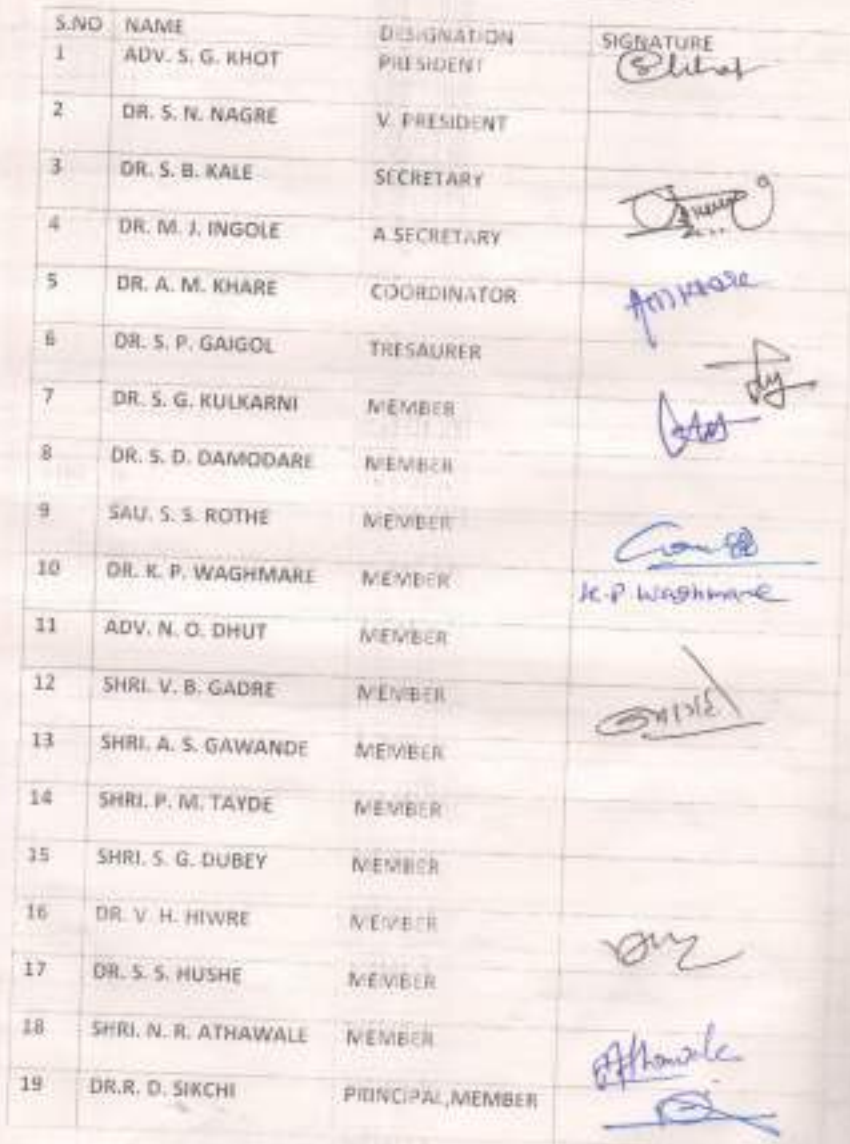 S.NO NAME DESIGNATION SIGNATURE
1 ADV. S. G. KHOT PRESIDENT
2 DR. S. N. NAGRE V. PRESIDENT
3 DR. S. B. KALE SECRETARY
4 DR. M. J. INGOLE A.SECRETARY
5 DR. A. M. KHARE COORDINATOR AMKhare
6 DR. S. P. GAIGOL TRESAURER
7 DR. S. G. KULKARNI MEMBER
8 DR. S. D. DAMODARE MEMBER
9 SAU. S. S. ROTHE MEMBER
10 DR. K. P. WAGHMARE MEMBER K.P.Waghmare
11 ADV. N. O. DHUT MEMBER
12 SHRI. V. B. GADRE MEMBER
13 SHRI. A. S. GAWANDE MEMBER
14 SHRI. P. M. TAYDE MEMBER
15 SHRI. S. G. DUBEY MEMBER
16 DR. V. H. HIWRE MEMBER
17 DR. S. S. HUSHE MEMBER
18 SHRI. N. R. ATHAWALE MEMBER Athawale
19 DR.R. D. SIKCHI PRINCIPAL,MEMBER